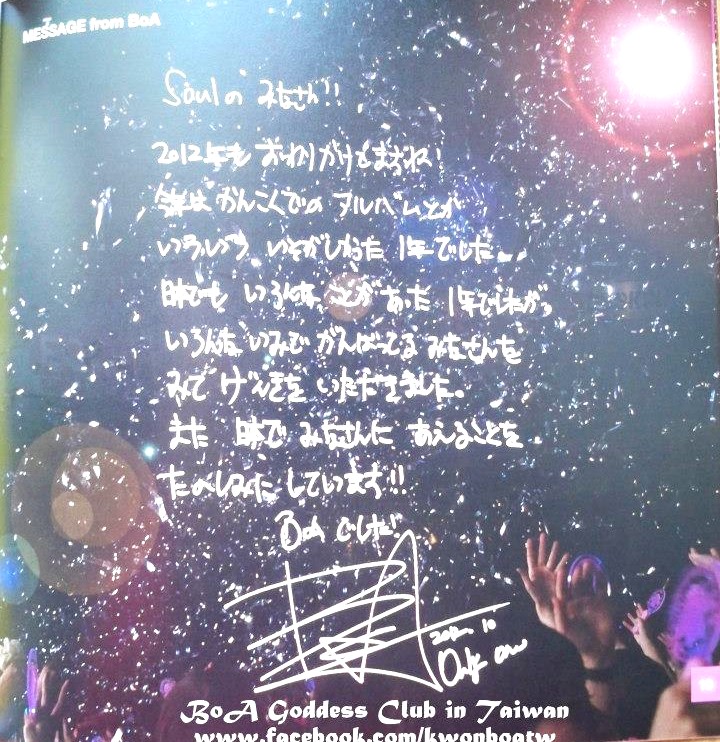 MESSAGE from BoA
Soulの みなさん!!
2012年も おわりがけもますね!
今年は かんこくでの アルバムとか
いろいろ いそがしかった 1年でした。
日本でも いろんな ことが あった 1年でしたがっ
いろんな いみで がんばってる みなさんを
みて げんきを いただきました。
また 日本で みなさんに あえることを
たのしみに しています!!
BoA でした!
2012. 10
Only one
BoA Goddess Club in Taiwan
www.facebook.com/kwonboatw